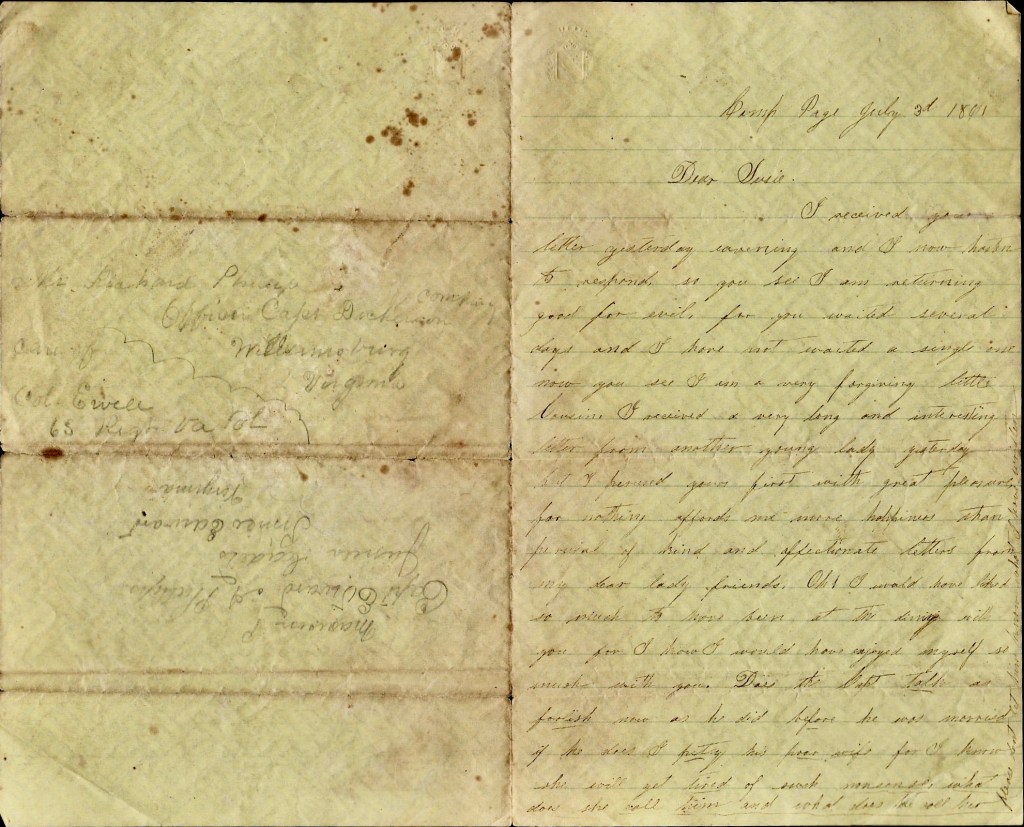 Mr Richard Philips
Company
Officer Capt Dickerson
Care of
Williamsburg
Virginia
Col. Ewell
65 Regt Va Vol
Capt Edward A
Prince Edward
Virginia
N
Camp Page July 3d 1861
Dear Susie.
I received your
letter yesterday eavening and I now hasten
to respond, so you see I am returning
good for evil, for you waited several
days and I have not waited a single one
now you see I am a very forgiving little
Cousin I received a very long and interesting
letter from another young lady yesterday
but I perused yours first with great pleasure,
for nothing affords me more happiness than
perusal of kind and affectionate letters from
my dear lady friends. Oh! I would have liked
so much to have been at the with
you for I know I would have enjoyed myself so
much with you. Does the Capt talk as
foolish now as he did before he was married
if he does I pitty his poor wife for I know
she will get tired of such nonsense, what
does she call him and what does he call her
please